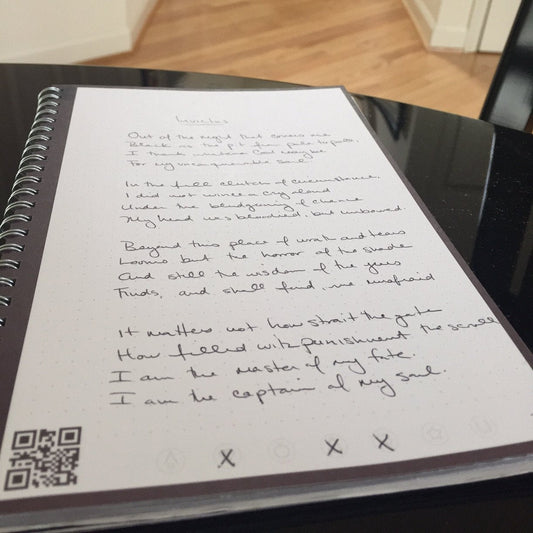 Invictus
Out of the night that covers me
Black as the pit from pole to pole,
I thank whatever God maybe
For my unconquerable soul
In the fell clutch of circumstance,
I did not wince or cry aloud
Under the bludgeoning of chance
My head was bloodied, but unbowed.
Beyond this place of wrath and tears
Looms but the horror of the shade
And still the wisdom of the years
Finds, and shall find, me unafraid
It matters not how strait the gate
How filled with punishment the scroll
I am the master of my fate.
I am the captain of my soul.
X X X